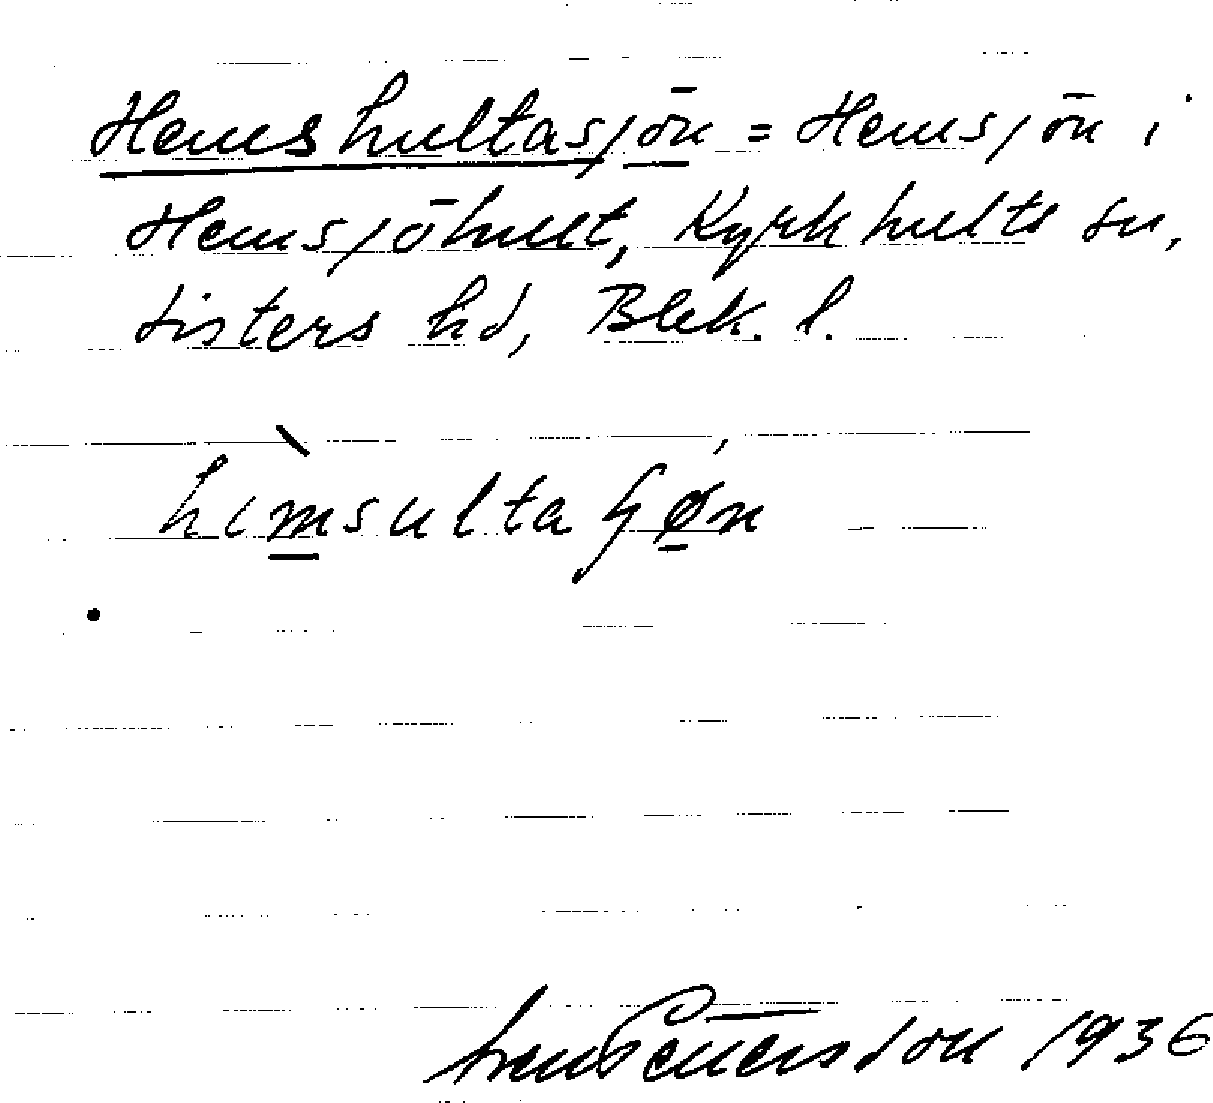 Hemshultasjön = Hemsjön i
Hemsjöhult, Kyrkhults sn,
Listers hd, Blek. l.
Sven Pettersson 1936